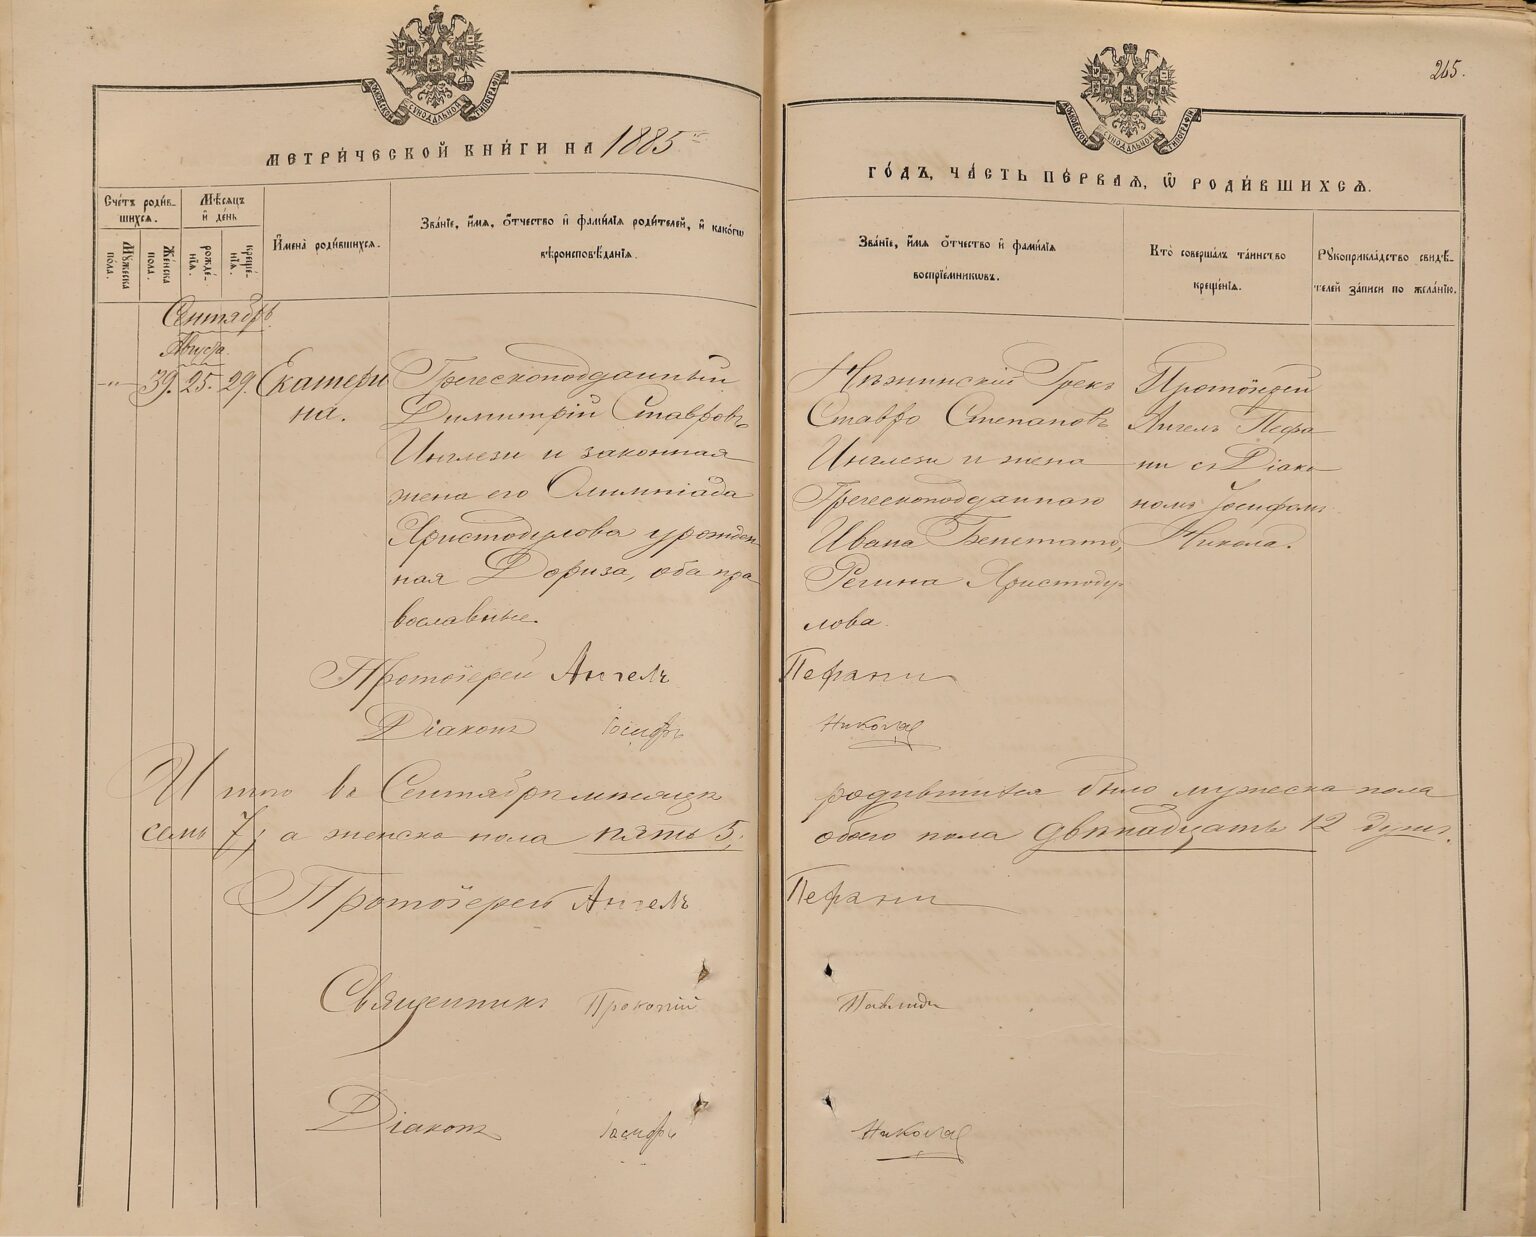 265.
КІЕВСКОЙ СѴНОДАЛЬНОЙ ТИПОГРАФІИ
КІЕВСКОЙ СѴНОДАЛЬНОЙ ТИПОГРАФІИ
МЕТРИ́ЧЕСКОЙ КНИ́ГИ НА 1885й
ГО́ДЪ, ЧА́СТЬ ПЕ́РВАЯ, Ѡ РОДИ́ВШИХСѦ.
Сче́тъ роди́в-
шихся.
Мѣ́сяцъ
и де́нь
Му́жеска
по́ла.
Же́нска
пола.
рожде́-
нїя.
креще́-
нїя.
И̓мена̀ роди́вшихся.
Зва́нїе, и́мя, о́тчество и фами́лїя роди́телей, и како́гѡ
вѣроисповѣ́данїя.
Зва́нїе, и́мя о́тчество и фами́лїя
воспрїе́мникѡвъ.
Кто̀ соверша́лъ та́инство
креще́нїя.
Рꙋкоприкла́дство свидѣ́-
телей за́писи по жела́нїю.
Сентябрь
Августа.
—„— 39. 25. 29. Екатери
на.
Греческоподданный
Димитрій Ставровъ
Инглези и законная
жена его Олимпіада
Христодулова урожден
ная Дориза, оба пра
вославные.
Нѣжинскій Грекъ
Ставро Степановъ
Инглези и жена
Греческоподданнаго
Ивана Бенетато,
Регина Христоду
лова.
Протоіерей
Ангелъ Пефа
ни съ Діако
номъ Іосифомъ
Никола.
Протоіерей Ангелъ Пефани
Діаконъ Іосифъ Николай
Итого въ Сентябрѣ мѣсяцѣ родившихся было мужеска пола
семь 7; а женска пола пять 5, обоего пола двѣнадцать 12 душъ.
Протоіерей Ангелъ Пефани
Священникъ Прокопій Павлиди
Діаконъ Іосифъ Николай